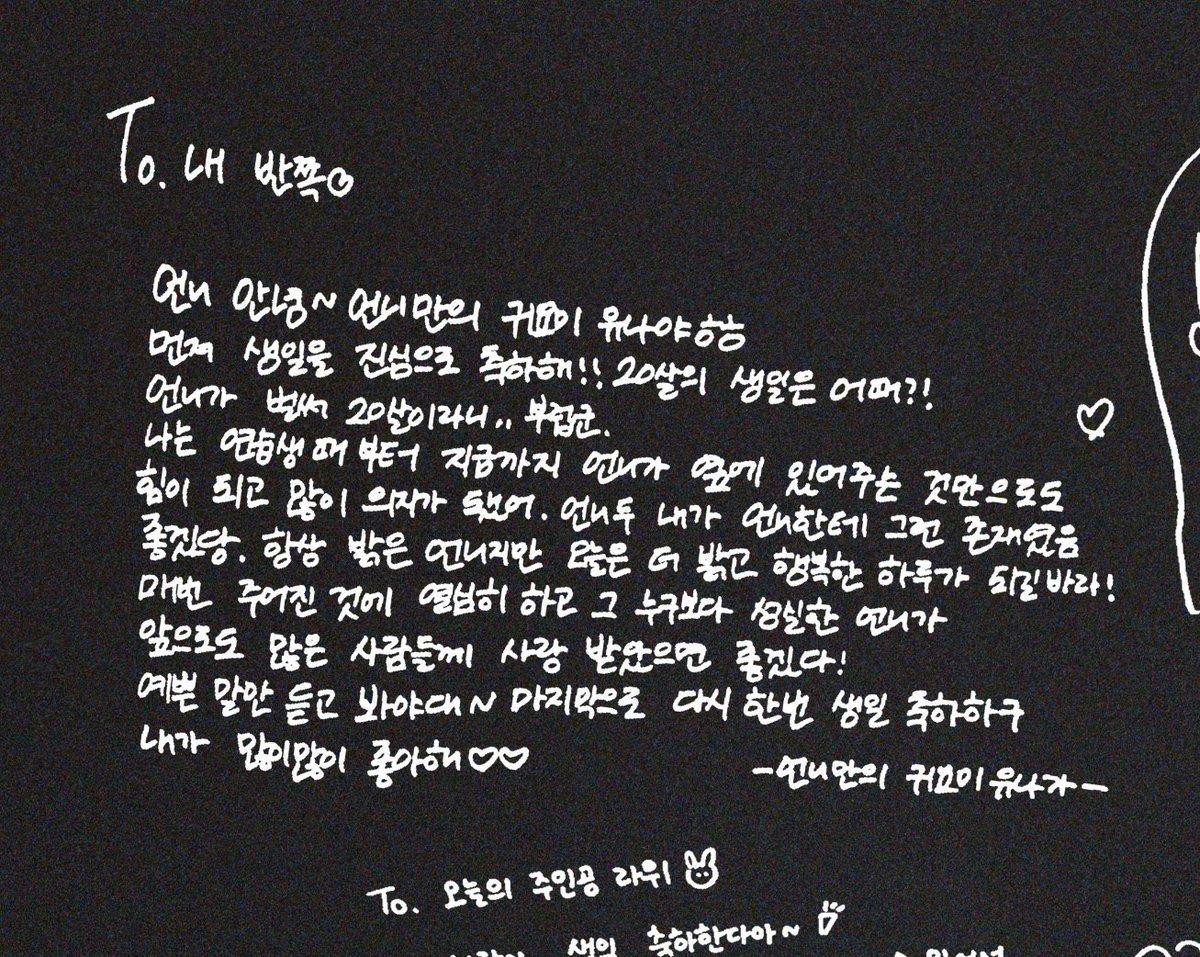 To. 내 반쪽♡
언니 안녕~ 언니만의 귀요미 유나야ㅎㅎ
먼저 생일을 진심으로 축하해!! 20살의 생일은 어때?!
언니가 벌써 20살이라니.. 부럽군.
나는 연습생때부터 지금까지 언니가 옆에 있어주는 것만으로도
힘이 되고 많이 의지가 됐어. 언니두 내가 언니한테 그런 존재였음
좋겠당. 항상 밝은 언니지만 오늘은 더 밝고 행복한 하루가 되길 바라!
매번 주어진 것에 열심히 하고 그 누구보다 성실한 언니가
앞으로도 많은 사람들께 사랑 받았으면 좋겠다!
예쁜 말만 듣고 봐야대~ 마지막으로 다시 한번 생일 축하하구
내가 많이많이 좋아해♡♡
-언니만의 귀요미 유나가-
To. 오늘의 주인공 라위
생일 축하한다아~